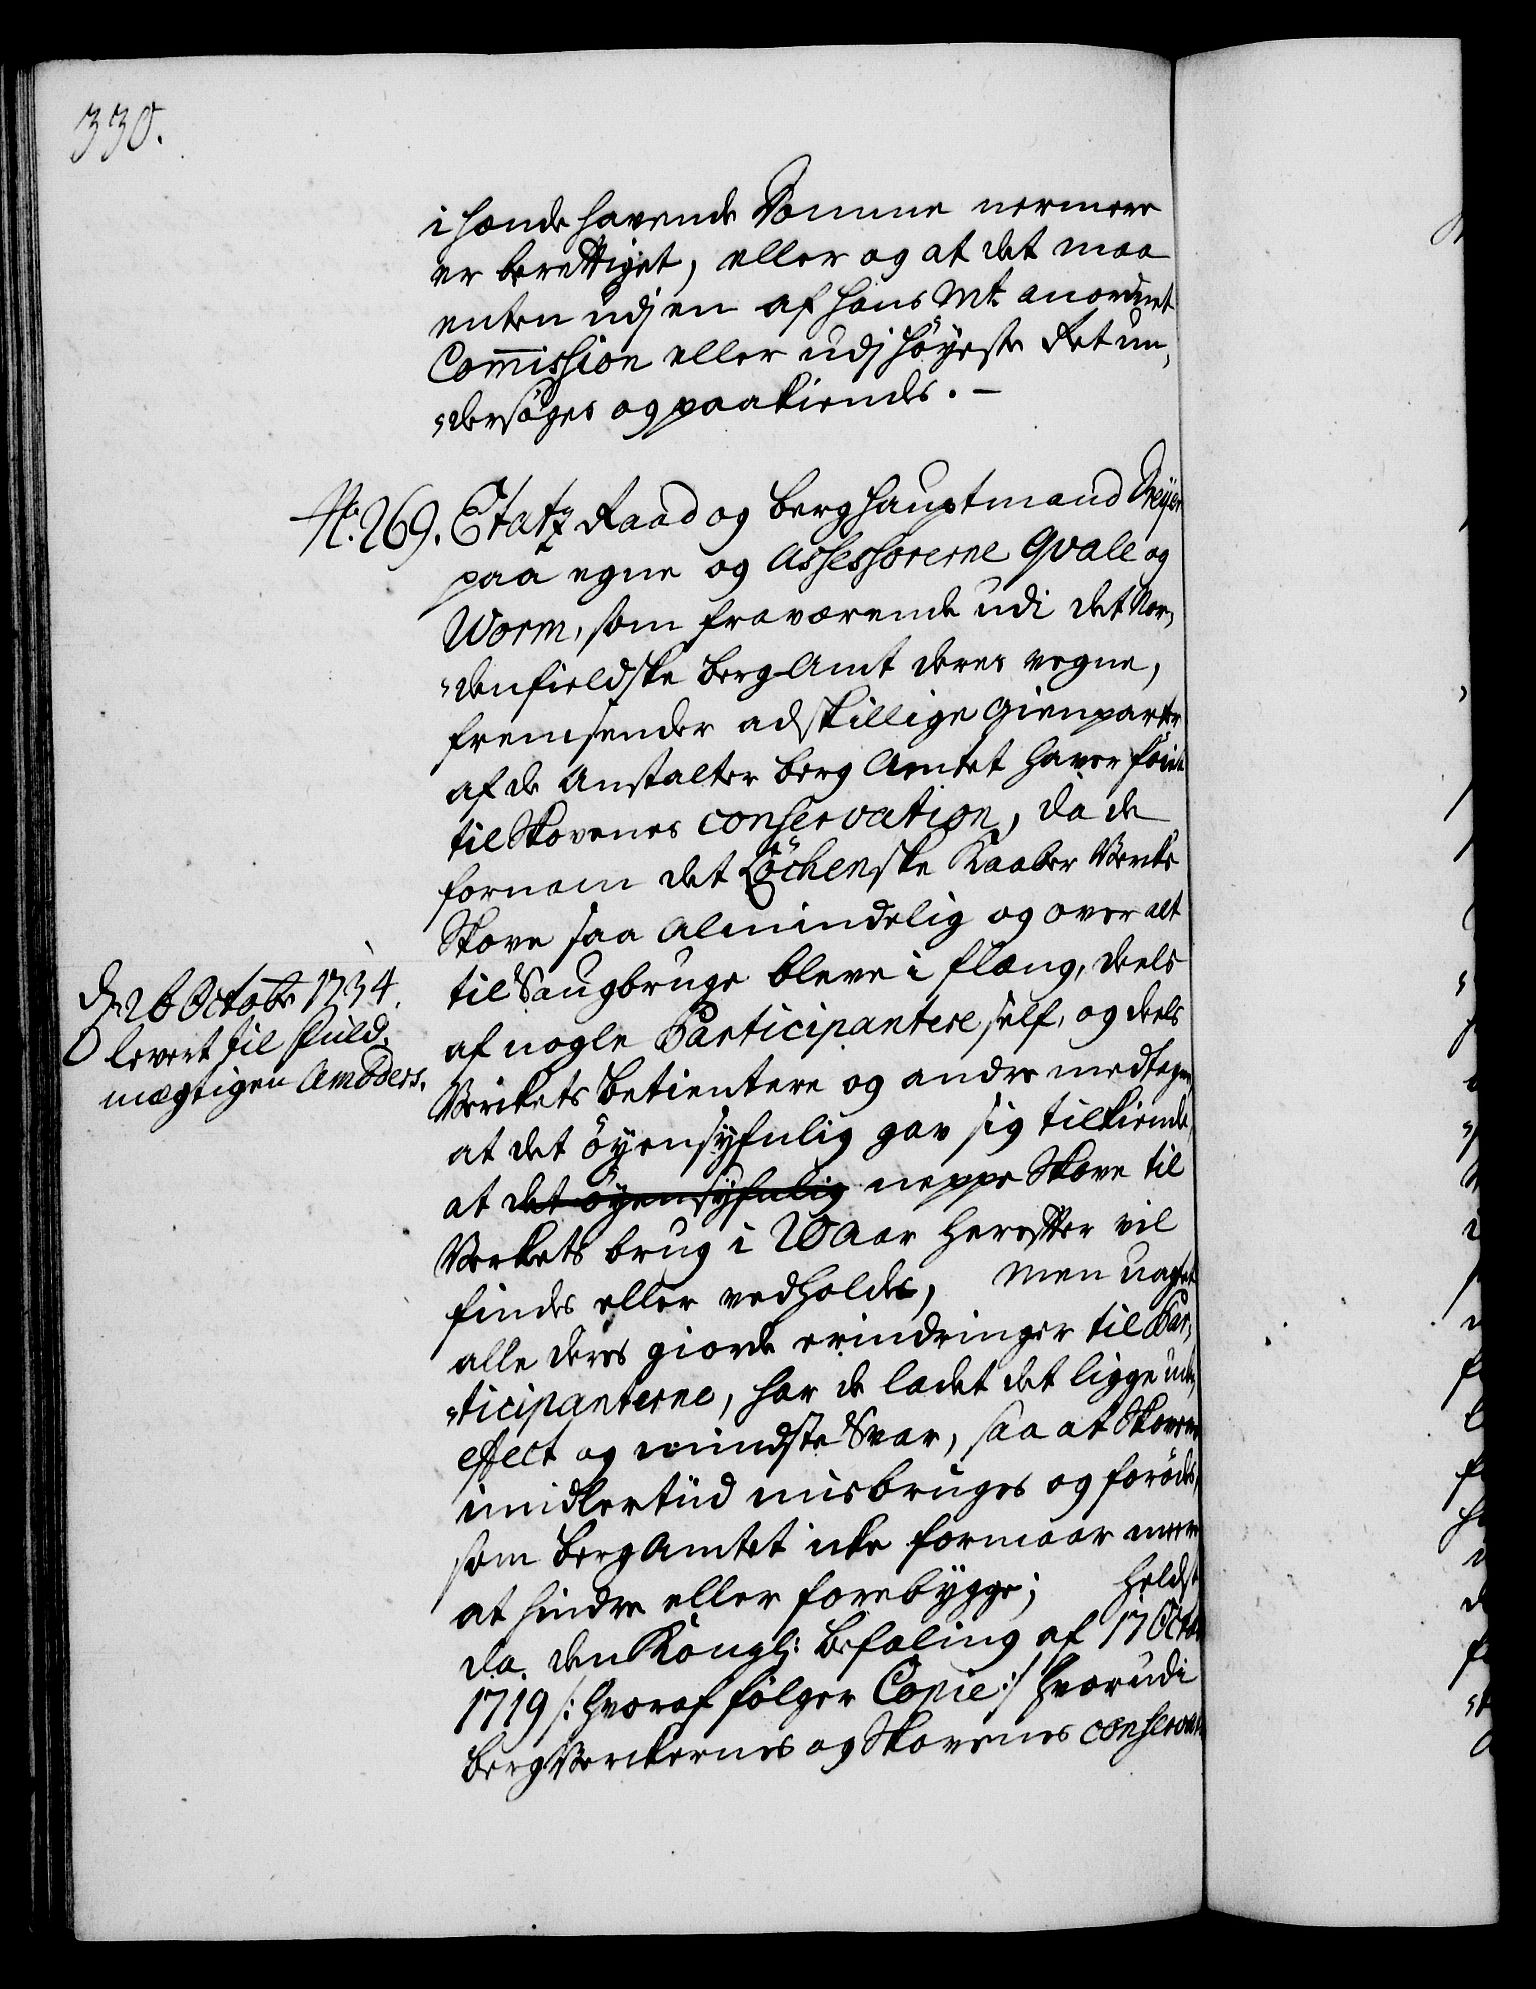 330.
i hænde havende Domme nermere
er berettiget, eller og at det maa
enten udj en af hans Mt. anordnet
Commission eller udj höyeste Ret un,
„dersöges og paakiendes. –
No. 269. Etatz Raad og Berghauptmand Dreyer
paa egne og Assessorerne Qvale og
Worm, som fraværende udi det Nor,
„denfieldske BergAmt deres vegne,
fremsender adskillige Gienparter
af de Anstalter BergAmtet haver föiet
til Skovenes conservation, da de
fornam det Löchenske Kaaber Vercks
Skove saa almindelig og over alt
til Saugbruge bleve i flæng, deels
af nogle Participantere self, og deels
Verckets Betientere og andre medtagen,
at det öyensÿnlig gav sig tilkiende,
at det öyensÿnlig neppe Skove til
Verkets brug i 20 Aar herefter vil
findes eller vedholdes, Men uagtet
alle deres giorde erindringer til Par,
„ticipanterne, har de ladet det ligge uden
effect og mindste Svar, saa at Skovene
imidlertiid misbruges og forödes,
som BergAmtet icke formaar meere
at hindre eller forebygge; heldst
da den Kongl: Befaling af 17 Octob
1719 /: hvoraf fölger Copie :/ hvorudi
BergVerckernes og Skovenes conserva
d. 26 Octobr 1734.
levert til Fuld„
mægtigen Amders.